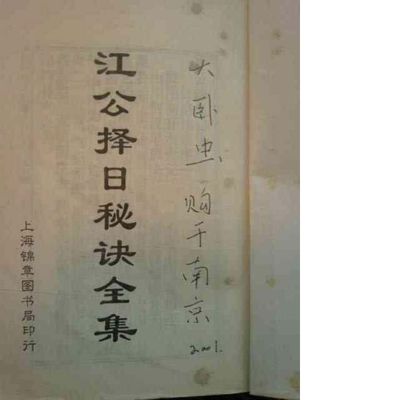 大卧虫购于南京
2001.
江公择日秘诀全集
上海锦章图书局印行